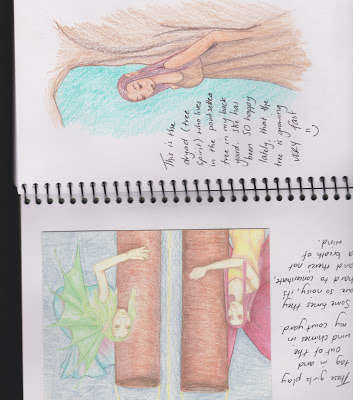 This is the
dryad (tree
spirit) who lives
in the pointsettia
tree in my back
yard. She has
been SO happy
lately, that the
tree is growing
VERY fast
:)
These girls play
tag in and
out of the
wind chimes in
my courtyard
Some times they
are so noisy, it's
hard to concentrate,
and there's not
a breath of
wind.